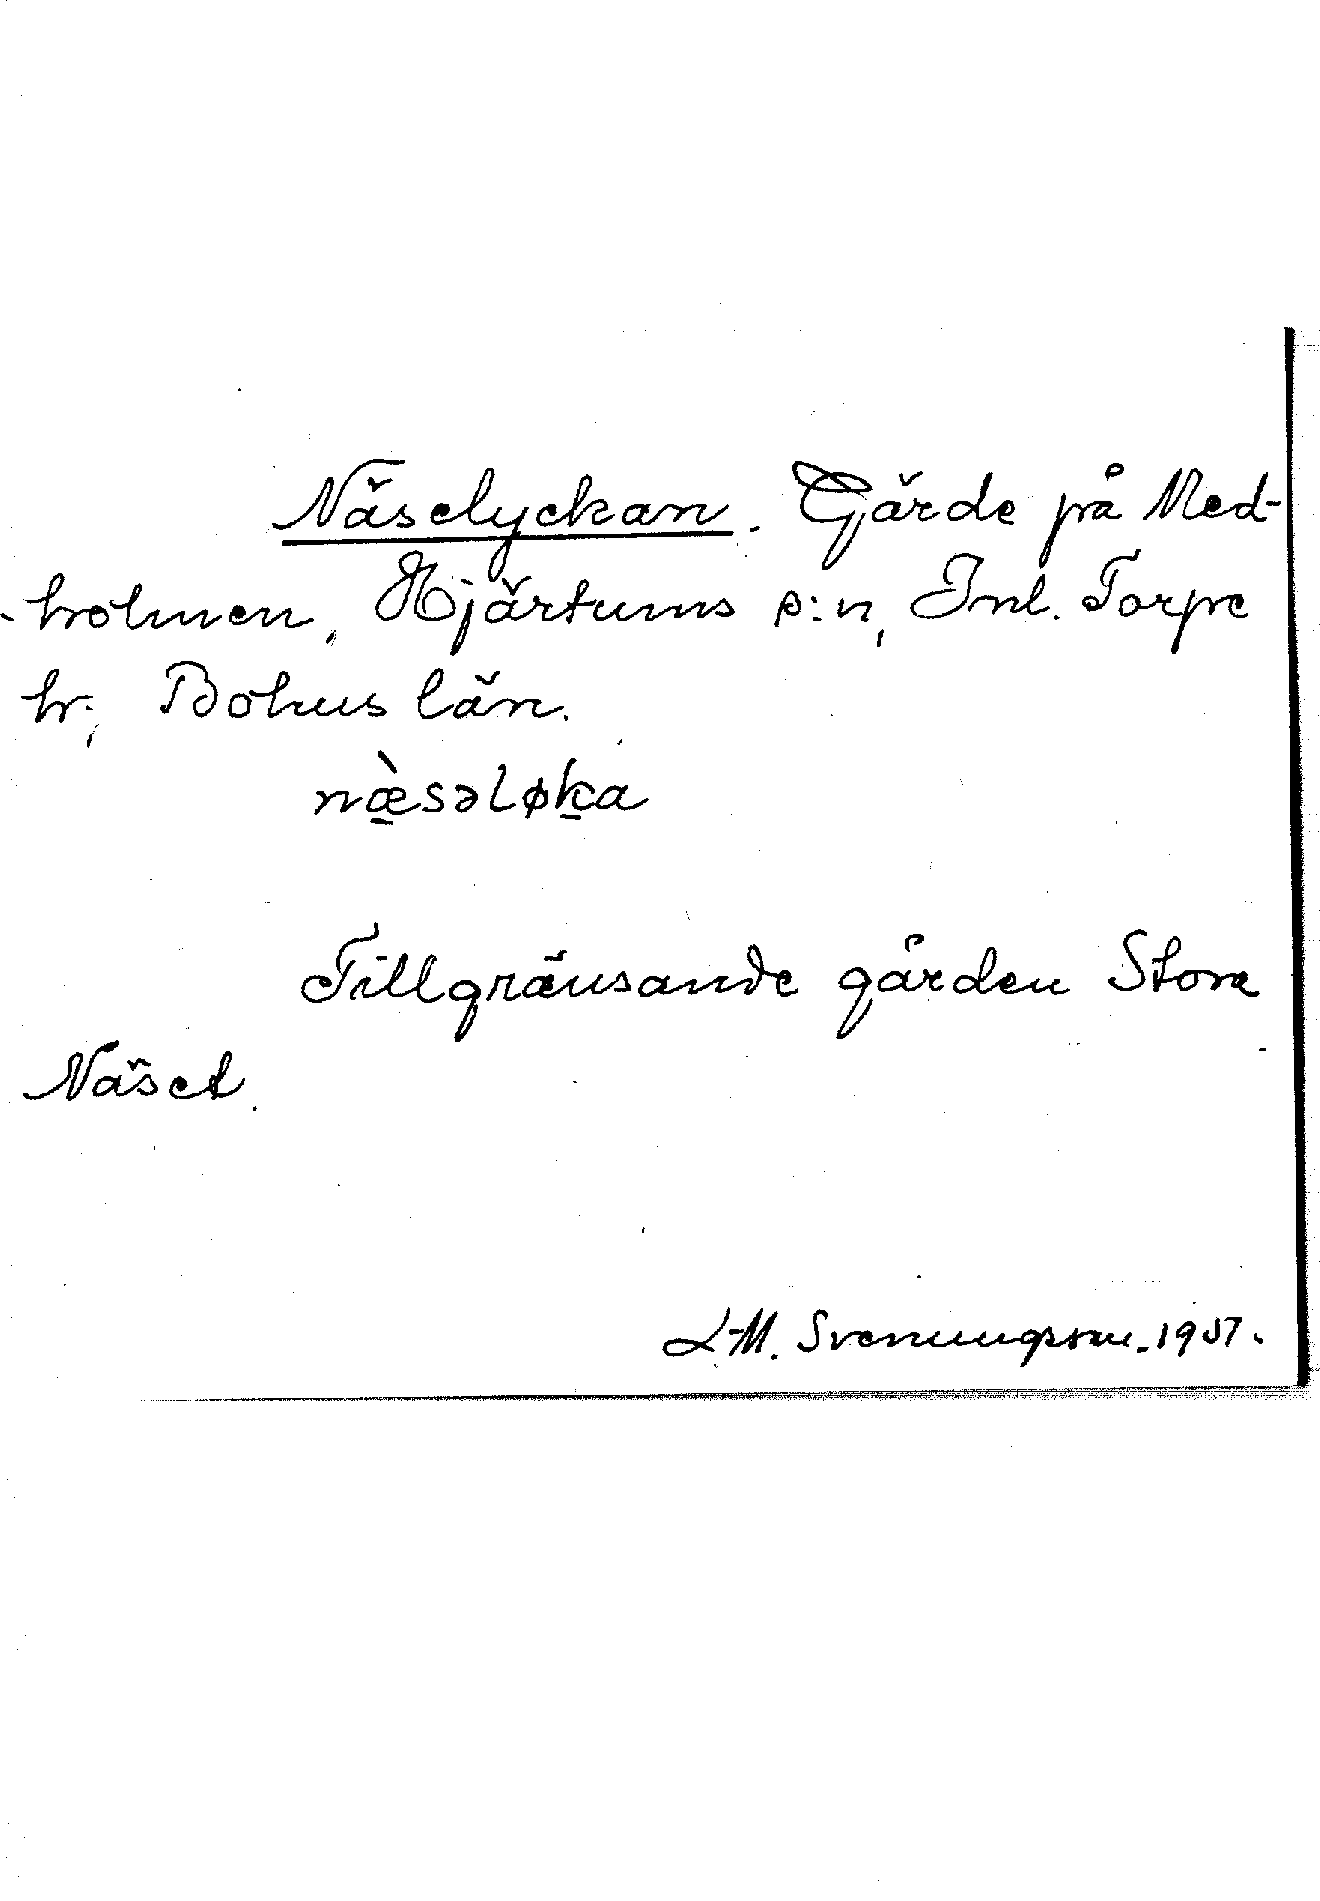 Näselyckan. Gärde på Med-
holmen, Hjärtums s:n, Inl. Torpe
h., Bohus län.
næ̱̀sələḵa
Tillgränsande gården Stora
Näset.
L-M. Svenungsson. 1957.